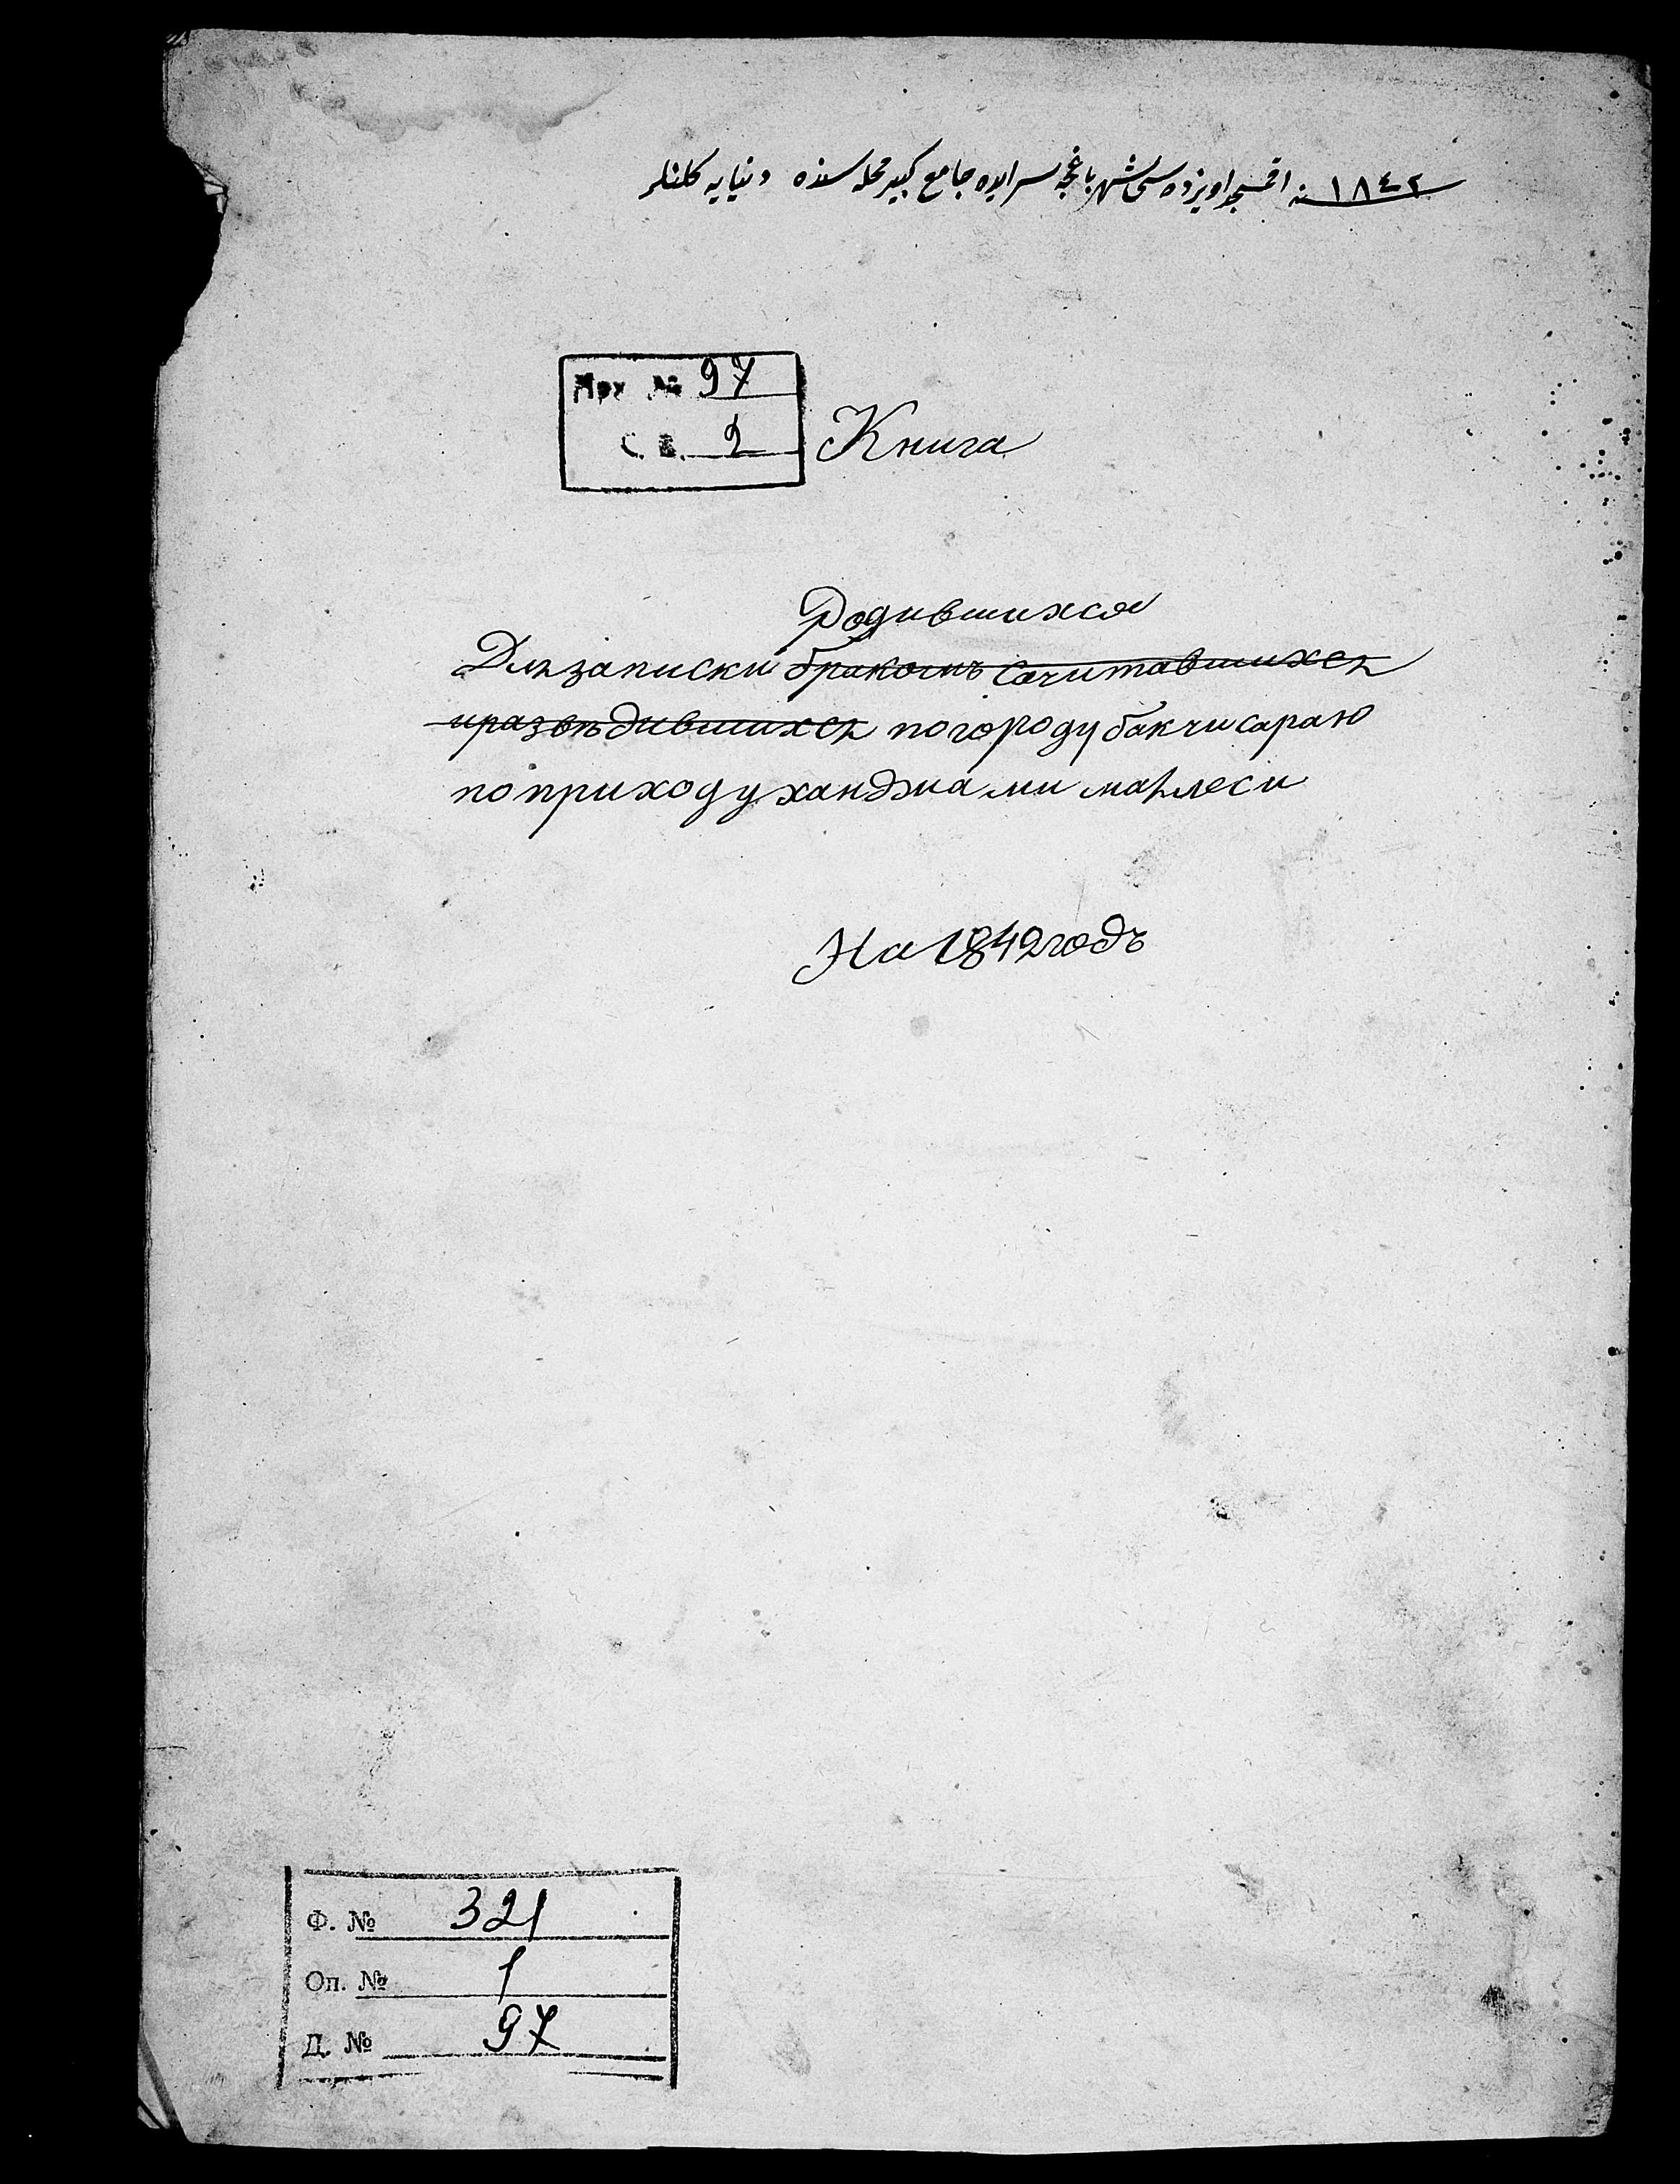 ١٨٤٢ سنه اقمسجد اويزده سى شهر باغچه سرايده جامع كبير محله سنده دنيايه كلنلر
Арх № 97
С. В. 2
Книга
Родившихся
Для записки бракомъ сочитавшихся
и развѣдившихся по городу бакчисараю
по приходу ханджиами маhлеси
На 1842 годъ
Ф. № 321
Оп. № 1
Д. № 97